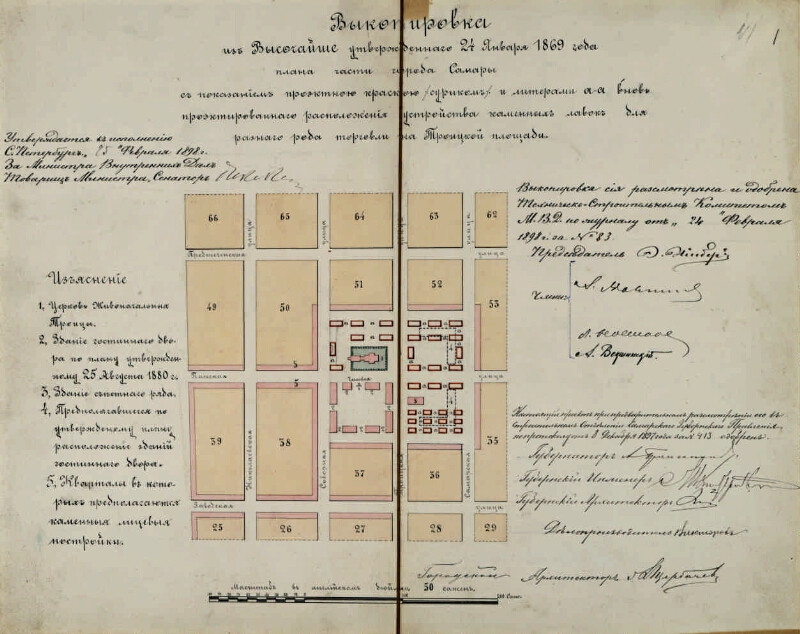 41 1
Выкопировка
изъ Высочайше утвержденнаго 24 Января 1869 года
плана части города Самары
съ показаніемъ проэктною краскою /сурикомъ/ и литерами а-а вновь
проэктированнаго расположенія и устройства каменныхъ лавокъ для
разнаго рода торговли на Троицкой площади.
Утверждается къ исполненію
С.Петербургъ, Февраля 1898 г.
За Министра Внутреннихъ Дѣлъ
Товарищъ Министра, Сенаторъ
Выкопировка сія разсмотрѣна и одобрена
Техническо-Строительнымъ Комитетомъ
М.В.Д. по журналу отъ „ 24 " Февраля
1898 г. за № 83.
Предсѣдатель
Члены:
Изъясненіе
1, Церковь Живоначальныя
Троицы.
2, Зданіе гостиннаго дво-
ра по плану утвержден-
ному 25 Августа 1880 г.
3, Зданіе обжатнаго ряда.
4, Предполагавшіяся по
утвержденному плану
расположеніе зданій
гостиннаго двора.
5, Кварталы въ кото-
рыхъ предполагаются
каменныя лицевыя
постройки.
66 65 64 63 62
Предтеченская улица улица улица улица
49 50 51 52 53
Панская улица
Часовня
39 38 37 36 35
Николаевская Соборная Троицкая Самарская
Заводская улица
25 26 27 28 29
Настоящій проектъ при предварительномъ разсмотрѣніи его въ
Строительномъ Отдѣленіи Самарскаго Губернскаго Правленія
по протоколу отъ 8 Декабря 1897 года за № 413 одобренъ.
Губернаторъ
Губернскій Инженеръ
Губернскій Архитекторъ
Дѣлопроизводитель
Городской Архитекторъ А. Щербачевъ
Масштабъ въ англійскомъ дюймѣ 50 саженъ.